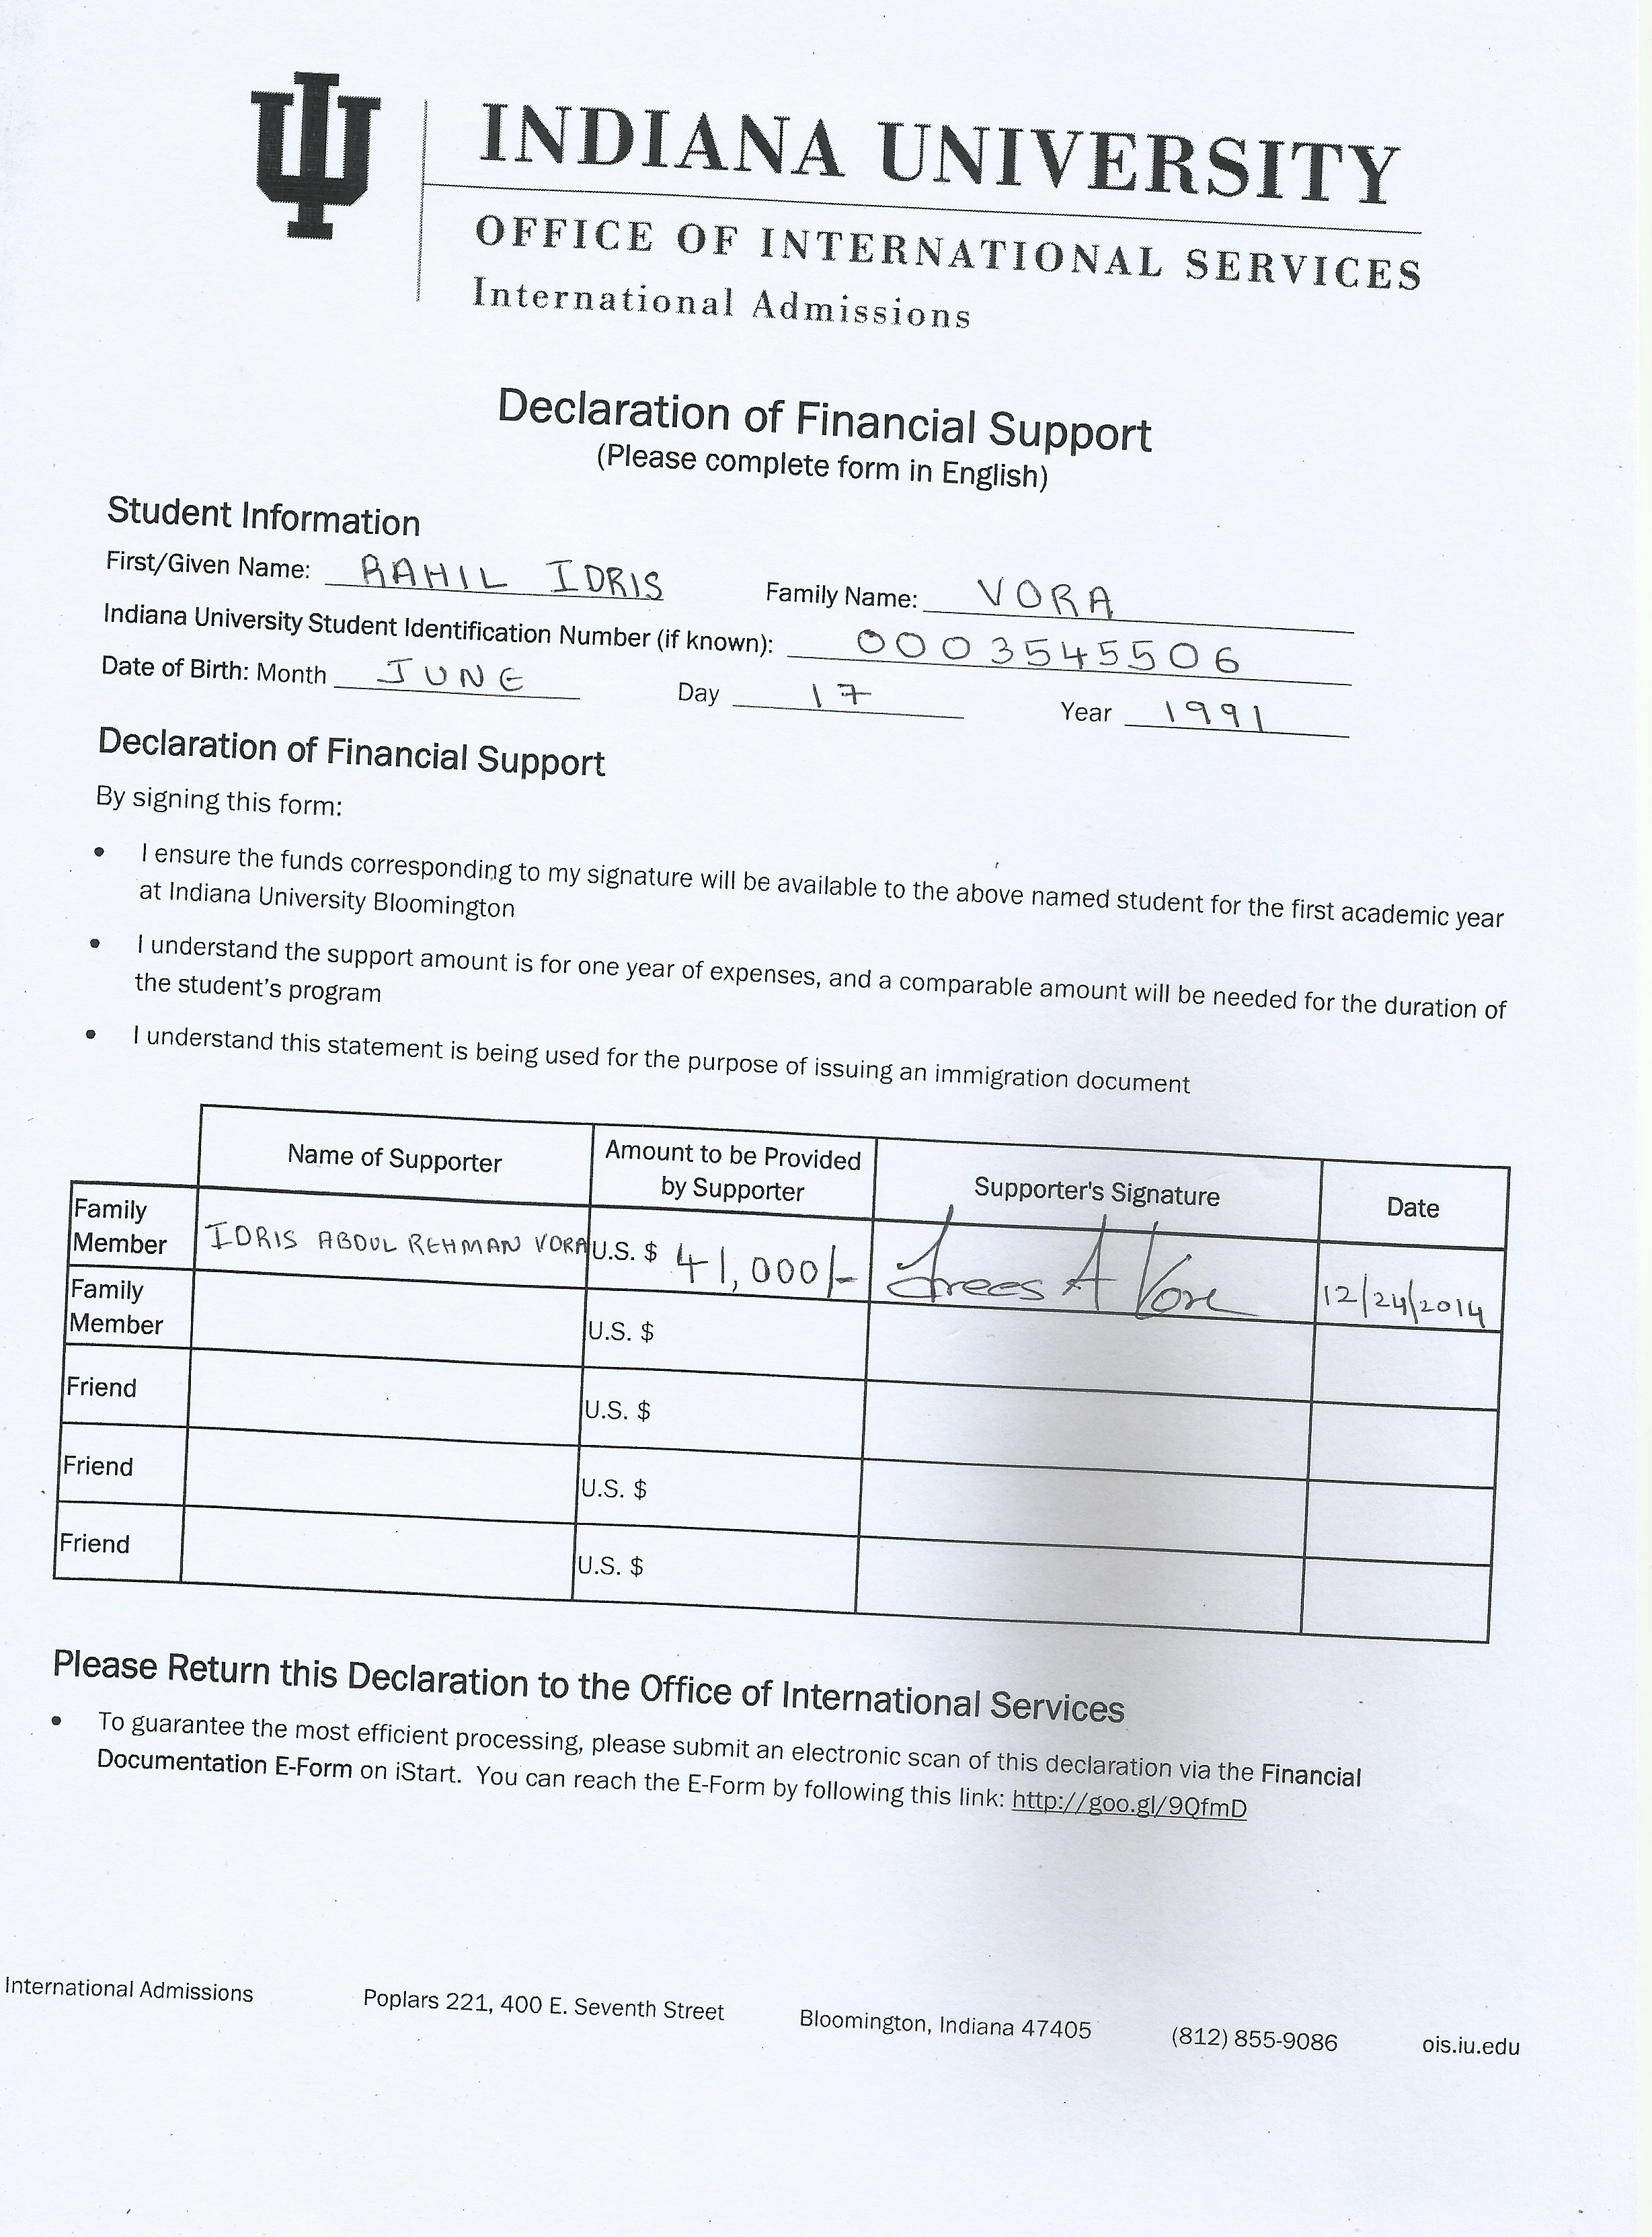 INDIANA UNIVERSITY
OFFICE OF INTERNATIONAL SERVICES
International Admissions
Declaration of Financial Support
(Please complete form in English)
Student Information
First/Given Name: RAHIL IDRIS Family Name: VORA
Indiana University Student Identification Number (if known): 0003545506
Date of Birth: Month JUNE Day 17 Year 1991
Declaration of Financial Support
By signing this form:
• I ensure the funds corresponding to my signature will be available to the above named student for the first academic year
at Indiana University Bloomington
• I understand the support amount is for one year of expenses, and a comparable amount will be needed for the duration of
the student's program
• I understand this statement is being used for the purpose of issuing an immigration document
Name of Supporter Amount to be Provided by Supporter Supporter's Signature Date
Family Member IDRIS ABDUL REHMAN VORA U.S. $ 41,000/- A Vora 12/24/2014
Family Member U.S. $
Friend U.S. $
Friend U.S. $
Friend U.S. $
Please Return this Declaration to the Office of International Services
• To guarantee the most efficient processing, please submit an electronic scan of this declaration via the Financial
Documentation E-Form on iStart. You can reach the E-Form by following this link: http://goo.gl/9QfmD
International Admissions Poplars 221, 400 E. Seventh Street Bloomington, Indiana 47405 (812) 855-9086 ois.iu.edu